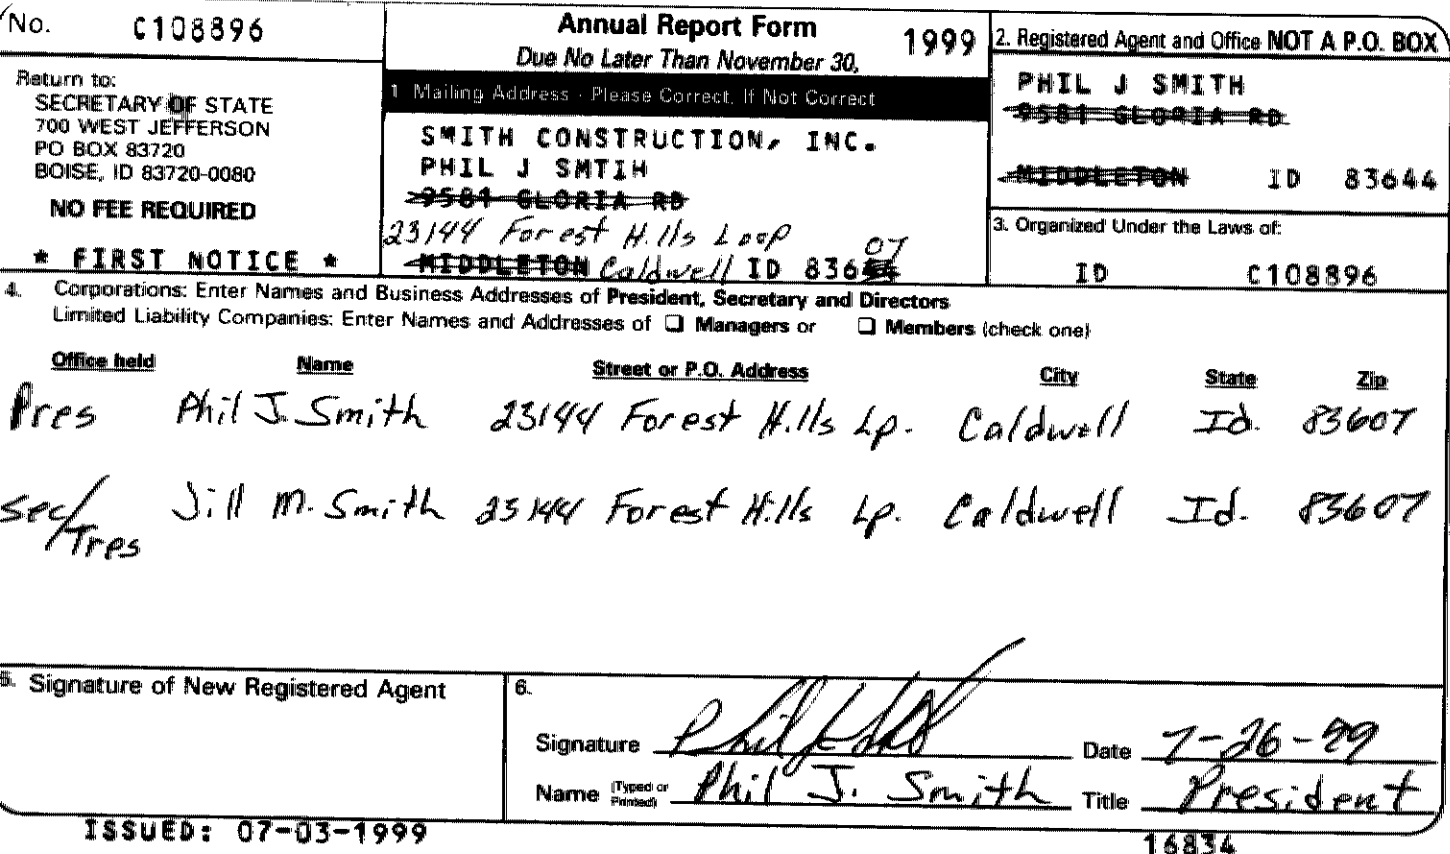 No. C108896
Return to:
SECRETARY OF STATE
700 WEST JEFFERSON
PO BOX 83720
BOISE, ID 83720-0080
NO FEE REQUIRED
* FIRST NOTICE *
Annual Report Form 1999
Due No Later Than November 30,
1 Mailing Address - Please Correct, If Not Correct
SMITH CONSTRUCTION, INC.
PHIL J SMTIH
9581 GLORIA RD
23144 Forest Hills Loop
07
MIDDLETON Caldwell ID 83644
2. Registered Agent and Office NOT A P.O. BOX
PHIL J SMITH
9581 GLORIA RD
MIDDLETON ID 83644
3. Organized Under the Laws of:
ID C108896
4. Corporations: Enter Names and Business Addresses of President, Secretary and Directors
Limited Liability Companies: Enter Names and Addresses of ❑ Managers or ❑ Members (check one)
Office held Name Street or P.O. Address City State Zip
Pres Phil J. Smith 23144 Forest Hills Lp. Caldwell Id. 83607
Sec/Tres Jill M. Smith 23144 Forest Hills Lp. Caldwell Id. 83607
5. Signature of New Registered Agent
6.
Signature Phil J Smith Date 7-26-99
Name (Typed or Printed) Phil J. Smith Title President
ISSUED: 07-03-1999
16834